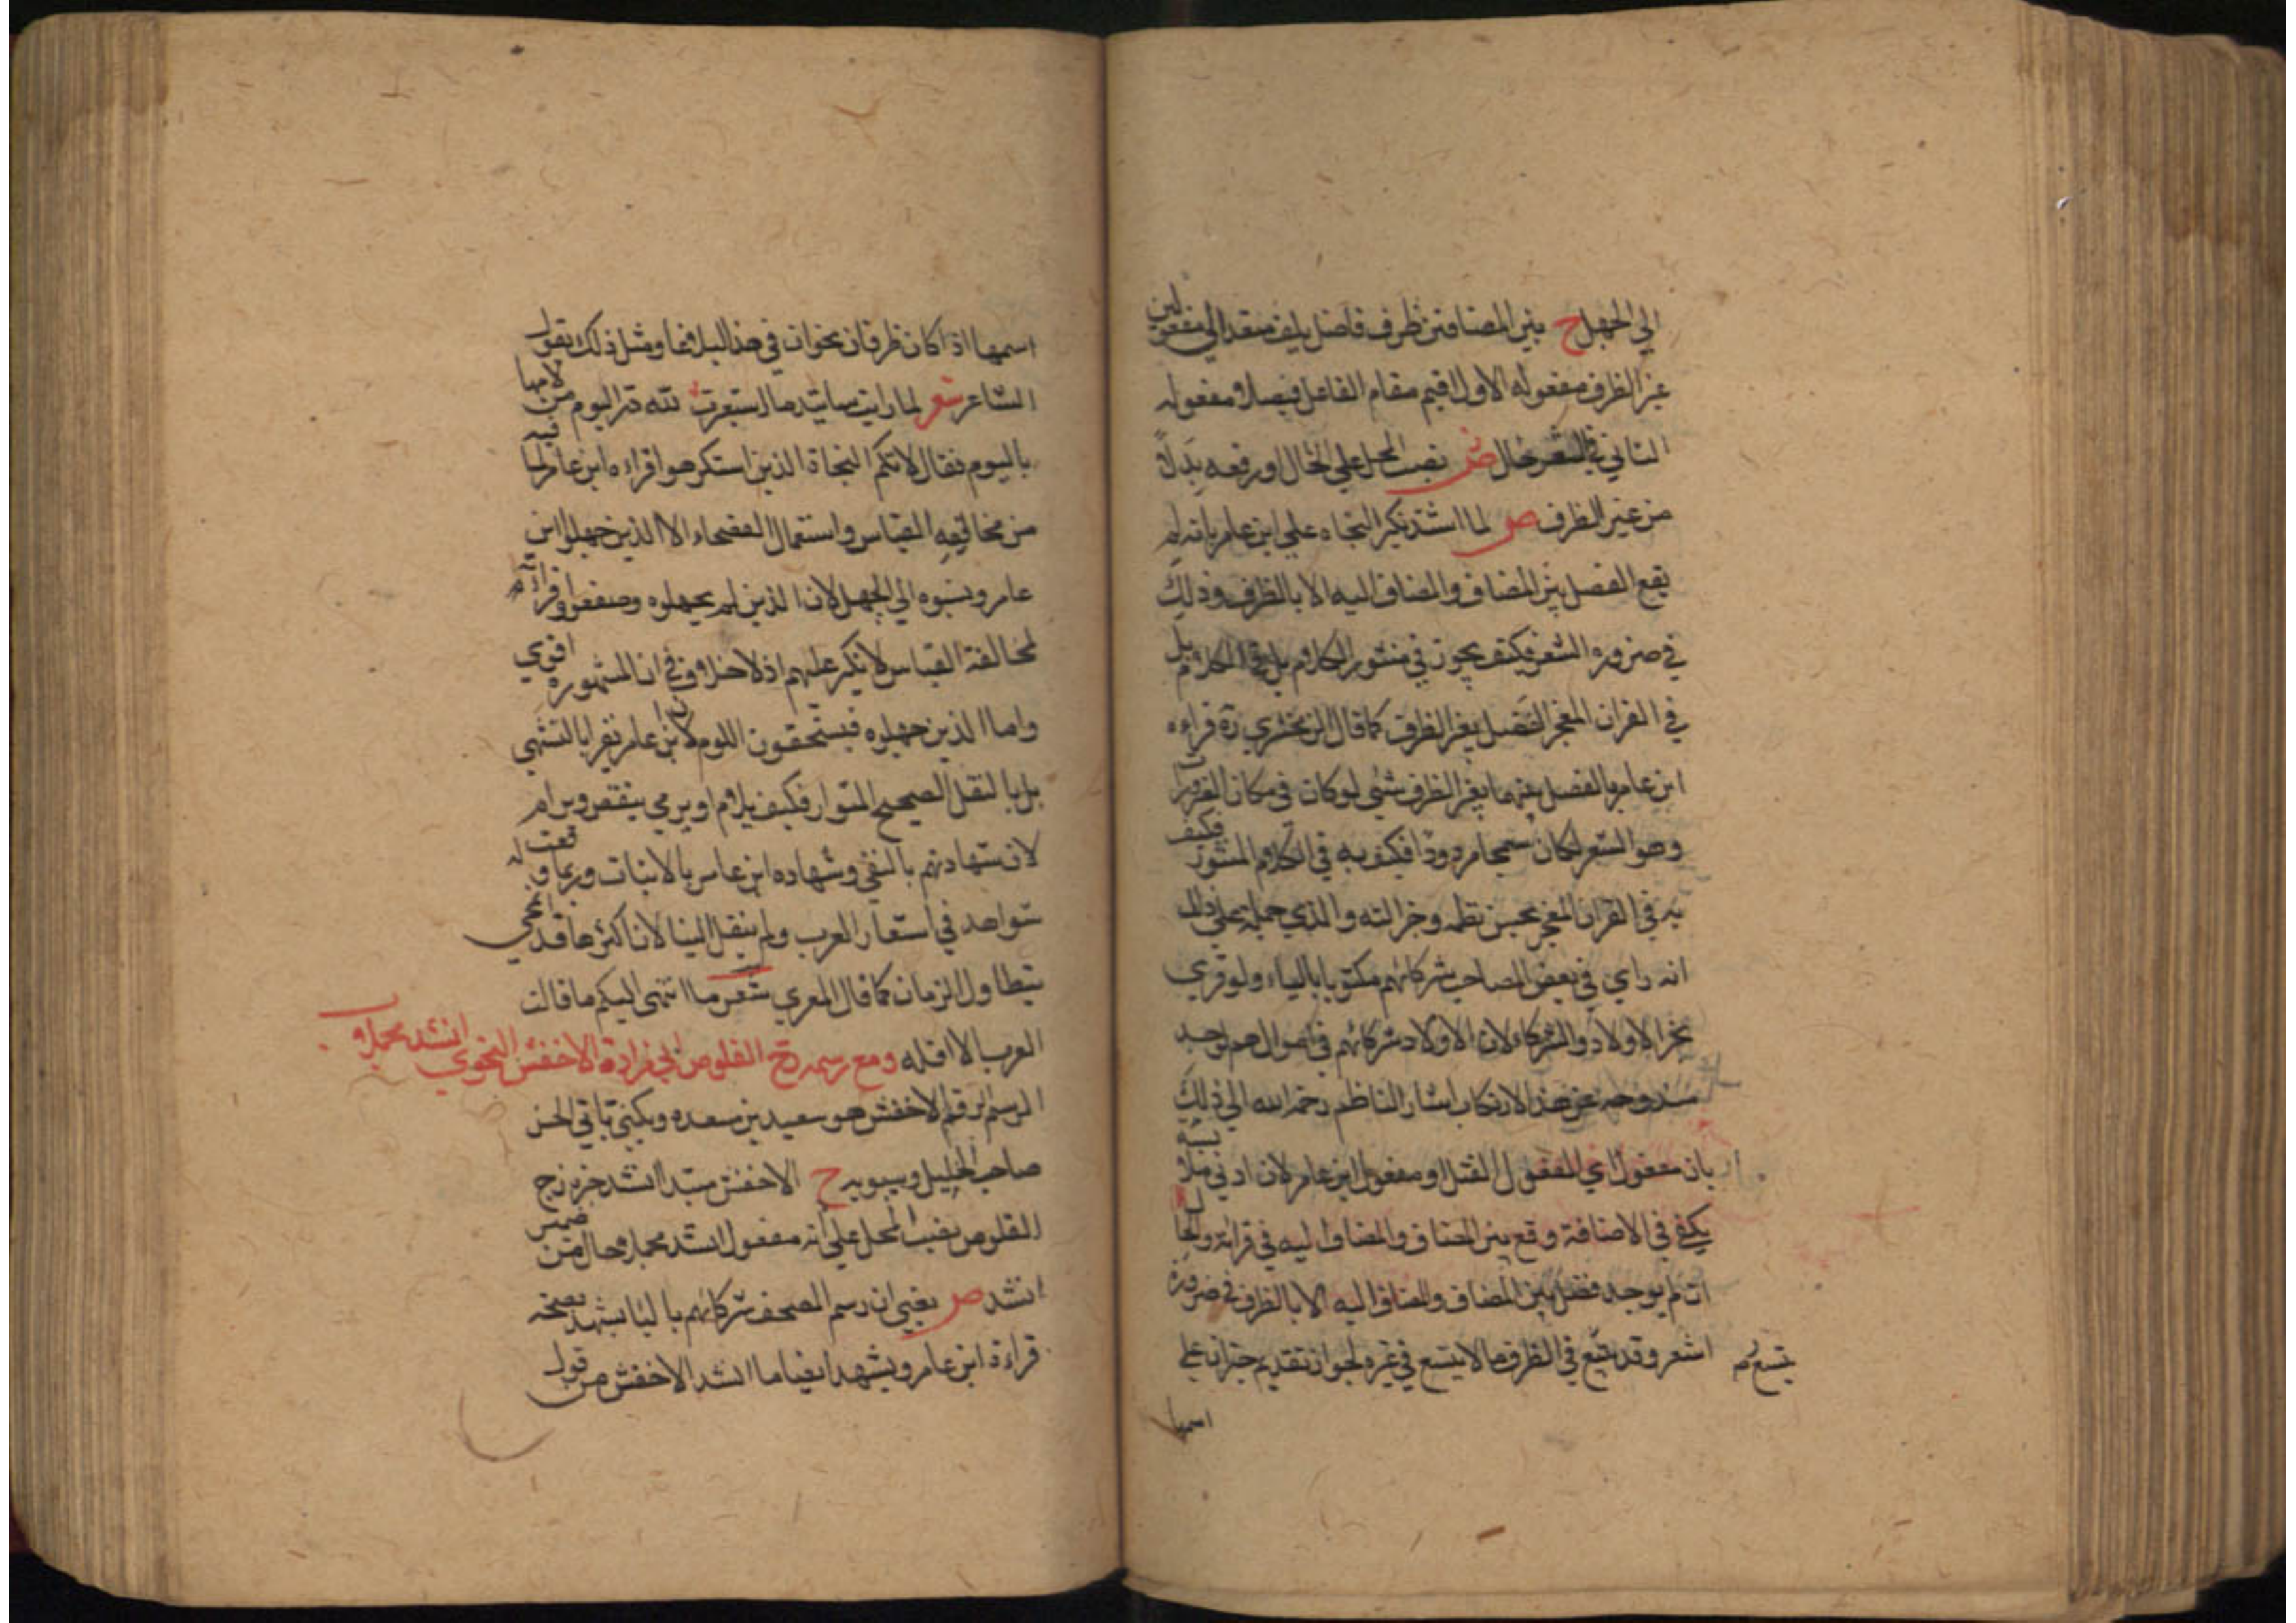 الي الجهل ح بين المضافين ظرف فاصل يلف متعد الي مفعولين
غير الظرف مفعوله الاول اقيم مقام الفاعل فيصلا مفعوله
الثاني في الشعر حال ض نصب المحل علي الحال او رفعه بدلا
من غير الظرف ص لما اشتد نكير النحاه علي ابن عامر بانه لم
يقع الفصل بين المضاف والمضاف اليه الا بالظرف وذلك
في ضروره الشعر فكيف يجوز في منثور الكلام بل في الكلام بل
في القران المعجز الفصل بغير الظرف كما قال الزمخشري رد قراءه
ابن عامر والفصل بينهما بغير الظرف شئي لو كان في مكان الضرورة
وهو الشعر لكان سمجا مردودا فكيف به في الكلام المنثور فكيف
به في القران المعجز بحسن نظمه وجزالته والذي حمله علي ذلك
انه راي في بعض المصاحب شركائهم مكتوبا بالياء ولو قري
بجر الاولاد والشركاء لان الاولاد شركائهم في اموالهم لوجد
مندوحه عن هذا الارتكاب اشار الناظم رحمه الله الي ذلك
بان مفعول اي المفعول القتل او مفعول ابن عامر لان ادني ملابسة
يكفي في الاضافة وقع بين المضاف والمضاف اليه في قرائة والحال
ان لم يوجد فصل بين المضاف والمضاف اليه الا بالظرف في ضرورة
اشعر وقد يتسع في الظرف ما لا يتسع في غيره لجواز تقديم خبران علي
يتسع
اسمها
اسمها اذا كان ظرفا نحو ان في هذا لبلاغا ومثل ذلك بقول
الشاعر شعر لما رات ساتيدما استعبرت لله در اليوم من لامها
باليوم فقال لا تكم النحاة الذين استكرهوا قراءه ابن عامر لما فيه
من مخالفه القياس واستعمال الفصحاء الا الذين جهلوا ابن
عامر ونسبوه الي الجهل لان الذين لم يجهلوه وضعفوا قرائته
لمخالفة القياس لا نكير عليهم اذ لا خلاف في ان المشهوره اقوي
واما الذين جهلوه فيستحقون اللوم لان ابن عامر لم يقرا بالتشهي
بل بالنقل الصحيح المتواتر فكيف يلام او يرمي بنقص ويرام
لان شهادتهم بالنفي وشهاده ابن عامر بالاثبات وربما وقعت له
شواهد في اشعار العرب ولم ينقل الينا لان اكثرها قد انمحي
بتطاول الزمان كما قال المعري شعر ما انتهي اليكم ما قالت
العرب الا اقله ومع رسمه زج القلوص ابي مزادة الاخفش النحوي انشد مجملا
الرسم الرقم الاخفش هو سعيد بن سعده ويكني بابي الحسن
صاحب الخليل وسيبويه ح الاخفش مبتدا انشد خبره زج
القلوص نصب المحل علي انه مفعول انشد مجملا حال من ضمير
انشد ص يعني ان رسم المصحف شركائهم باليا يشهد بصحة
قراءة ابن عامر ويشهد ايضا ما انشد الاخفش من قول